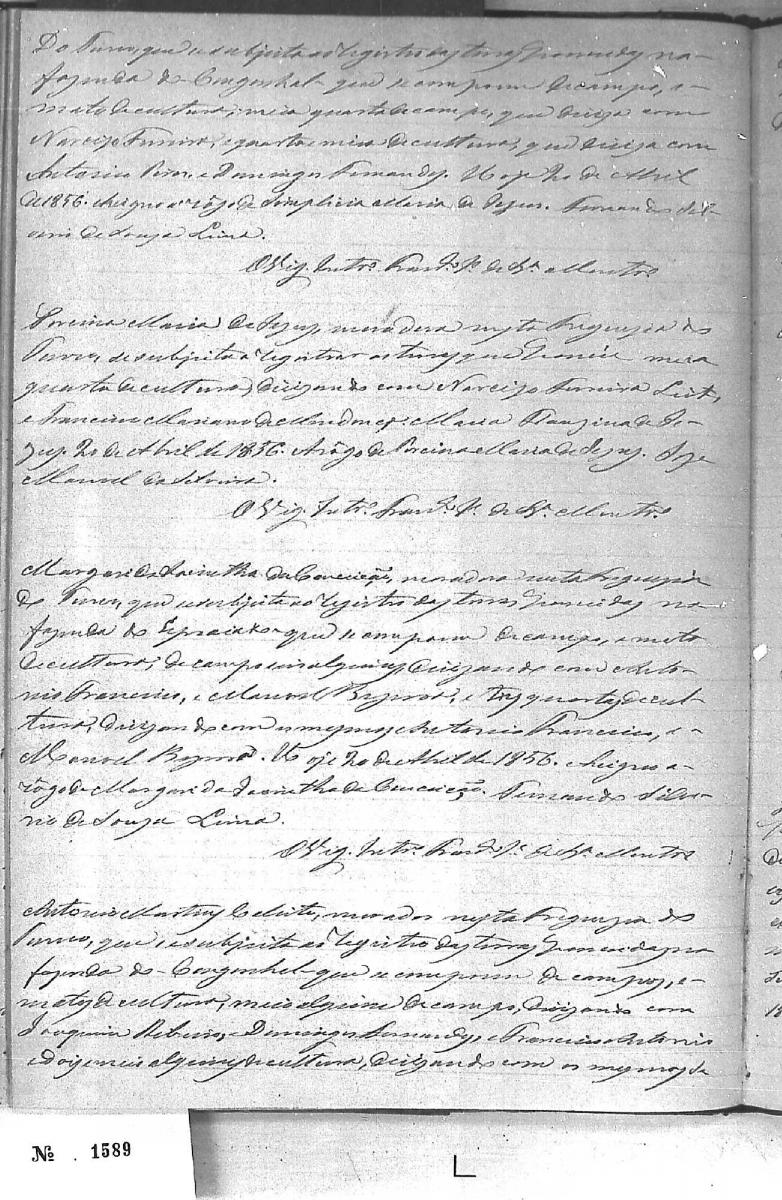 Do Turvo, que se subjeita ao Registro das terras q. possue das na
fazenda do Congonhal que se compoem de campo, e
mato de cultura, meia quarta de campo, que diviza com
Narcizo Ferreira, e quarta e meia de cultura, que diviza com
Antonio Pires, e Domingos Fernandes. Hoje 20 de Abril
de 1856. Assigno a rôgo de Simplicia Maria de Jezus. Fernando Sil-
verio de Souza Lima.
O Vig. Intrº. Franº. Jº. de Sª. Montrº.
Maria de Jezus, moradora nesta Freguezia do
Turvo, se subjeita a registrar as terras que possue meia
quarta de cultura, divizando com Narcizo Ferreira Leite,
e Francisco Mariano de Maria de Je-
zus. 20 de Abril de 1856. A rôgo de Maria de Jezus. Joze
Manoel da Silveira.
O Vig. Intrº. Franº. Jº. de Sª. Montrº.
Margarida Jacintha da Conceição, moradora nesta Freguezia
do Turvo, que se subjeita ao Registro das terras possuidas na
fazenda do que se compoem de campo, e mato
de cultura, de campo alqueires, divizando com Anto-
nio Francisco, e Manoel Bezerra, e tres quartas de cul-
tura, divizando com os mesmos Antonio Francisco, e
Manoel Bezerra. Hoje 20 de Abril de 1856. Assigno a
rôgo de Margarida Jacintha da Conceição. Fernando Silve-
rio de Souza Lima.
O Vig. Intrº. Franº. Jº. de Sª. Montrº.
Antonio Martins morador nesta Freguezia do
Turvo, que se subjeita ao Registro das terras possuidas na
fazenda do Congonhal que se compoem de campos, e
matos de cultura, meio alqueire de campo, divizando com
Joaquim Ribeiro, e Domingos Fernandes, e Francisco Antonio
e dois e meio alqueires de cultura, divizando com os mesmos
Nº 1589